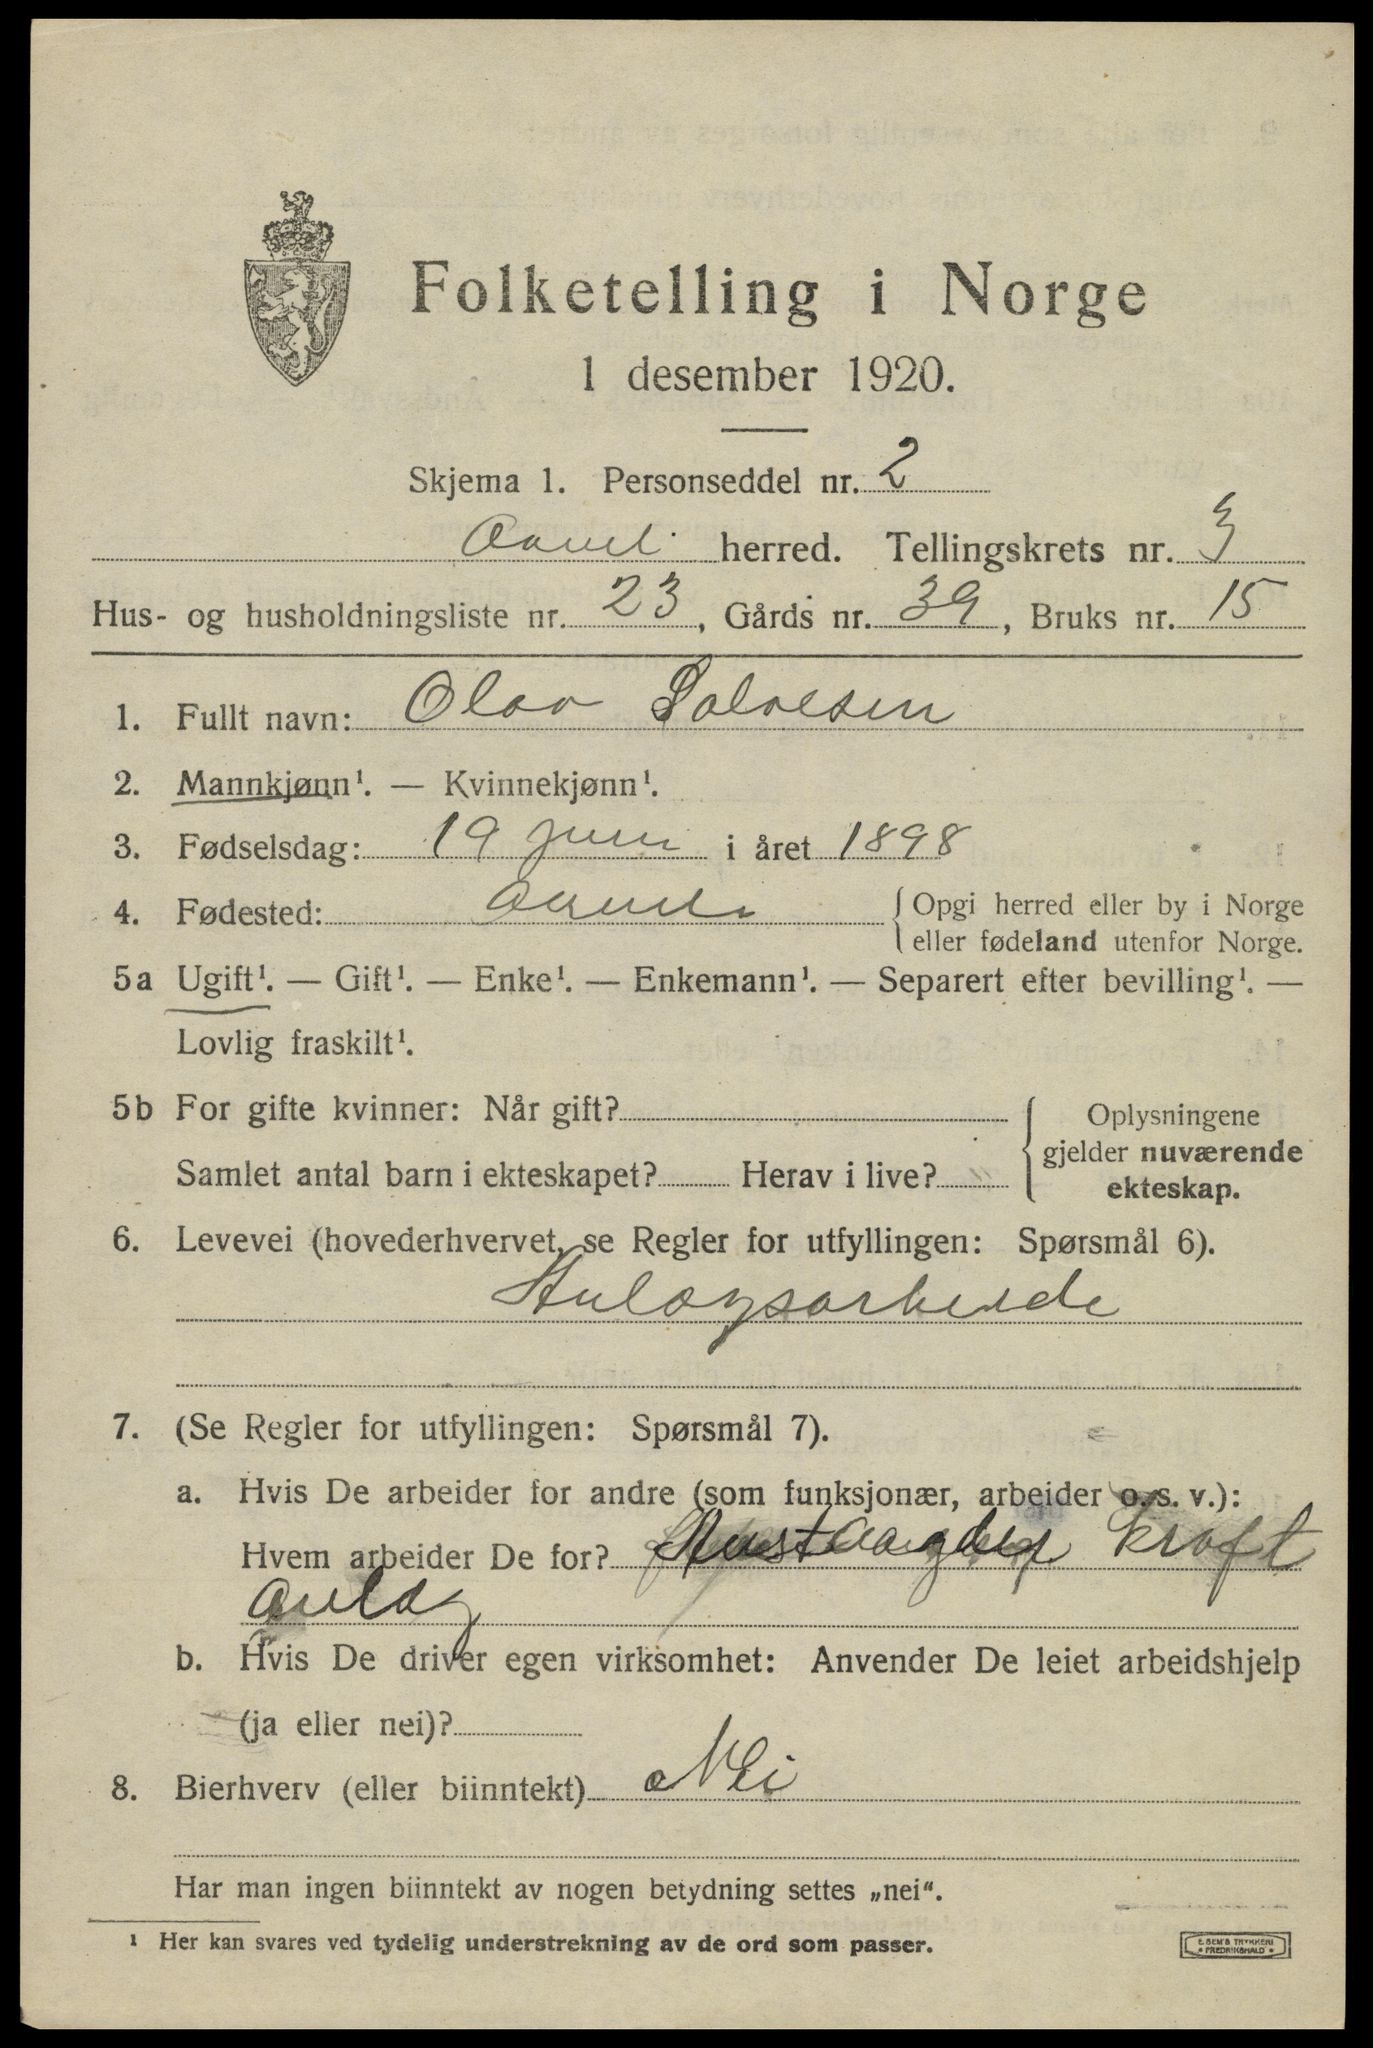 Folketelling i Norge
1 desember 1920.
Skjema 1. Personseddel nr. 2
Aamli herred. Tellingskrets nr. 3
Hus- og husholdningsliste nr. 23, Gårds nr. 39, Bruks nr. 15
1. Fullt navn: Olav Salvesen
2. Mannkjønn¹. — Kvinnekjønn¹.
3. Fødselsdag: 19 juni i året 1898
4. Fødested: Aamli { Opgi herred eller by i Norge
eller fødeland utenfor Norge.
5a Ugift¹. — Gift¹. — Enke¹. — Enkemann¹. — Separert efter bevilling¹. —
Lovlig fraskilt¹.
5b For gifte kvinner: Når gift? { Oplysningene
gjelder nuværende
Samlet antal barn i ekteskapet? Herav i live?
ekteskap.
6. Levevei (hovederhvervet, se Regler for utfyllingen: Spørsmål 6).
Anlægsarbeide
7. (Se Regler for utfyllingen: Spørsmål 7).
a. Hvis De arbeider for andre (som funksjonær, arbeider o. s. v.):
Hvem arbeider De for? Austaagder Kraft
anlæg
b. Hvis De driver egen virksomhet: Anvender De leiet arbeidshjelp
(ja eller nei)?
8. Bierhverv (eller biinntekt) Nei
Har man ingen biinntekt av nogen betydning settes „nei“.
¹ Her kan svares ved tydelig understrekning av de ord som passer.
E. SEM'S TRYKKERI
• FREDRIKSHALD •